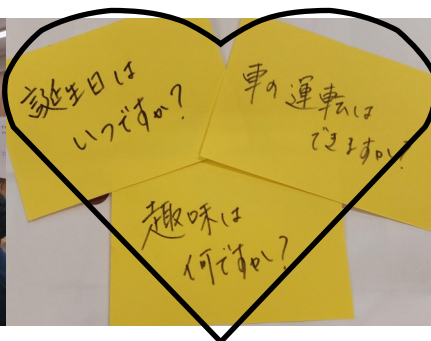 誕生日は
いつですか?
車の運転は
できますか?
趣味は
何ですか?